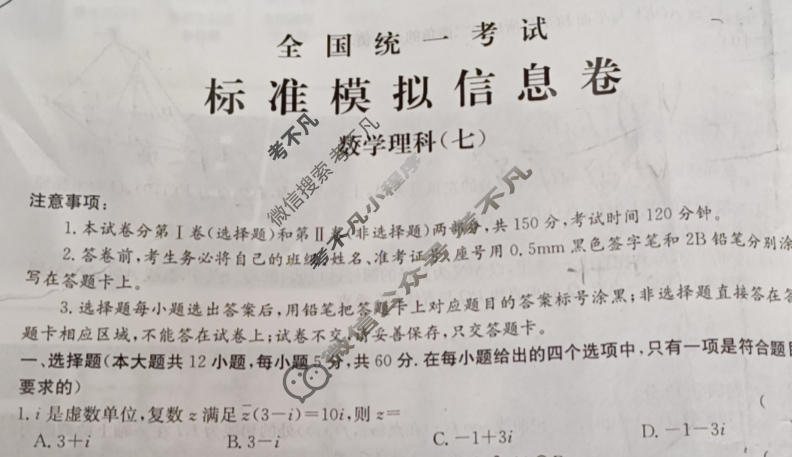 全国统一考试
标准模拟信息卷
数学理科(七)
注意事项:
1.本试卷分第Ⅰ卷(选择题)和第Ⅱ卷(非选择题)两部分,共150分,考试时间120分钟。
2.答卷前,考生务必将自己的班级、姓名、准考证号、座号用0.5mm黑色签字笔和2B铅笔分别涂
写在答题卡上。
3.选择题每小题选出答案后,用铅笔把答题卡上对应题目的答案标号涂黑;非选择题直接答在答
题卡相应区域,不能答在试卷上;试卷不交,请妥善保存,只交答题卡。
一、选择题(本大题共12小题,每小题5分,共60分.在每小题给出的四个选项中,只有一项是符合题目
要求的)
1.i是虚数单位,复数z满足z̅(3-i)=10i,则z=
A.3+i B.3-i C.-1+3i D.-1-3i
微信搜索 考不凡
考不凡
考不凡小程序
微信公众号 考不凡